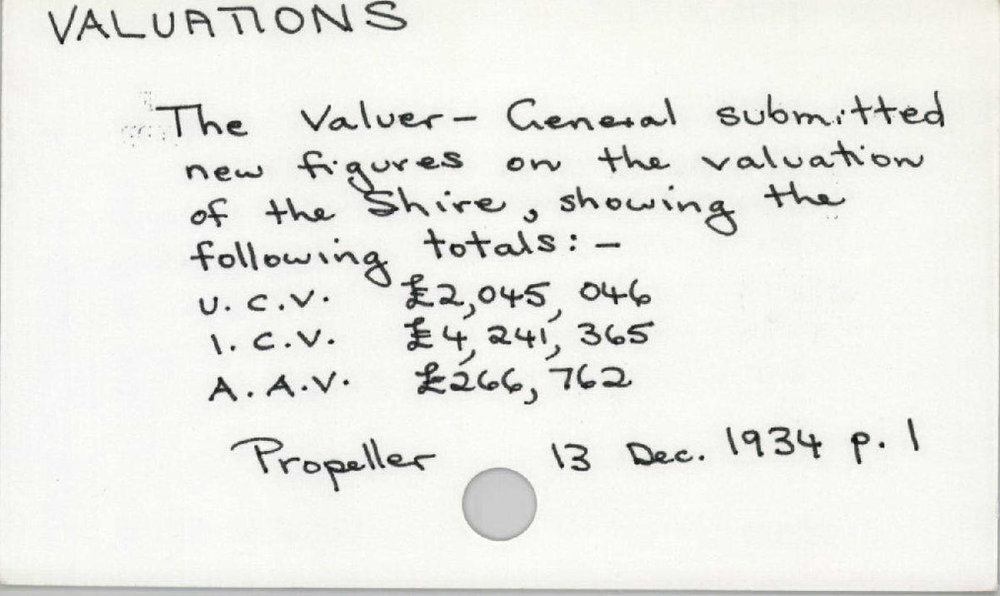 VALUATIONS
The Valuer- General submitted
new figures on the valuation
of the Shire, showing the
following totals:-
U.C.V. £2,045,046
I.C.V. £4,241,365
A.A.V. £266,762
Propeller 13 Dec. 1934 p. 1